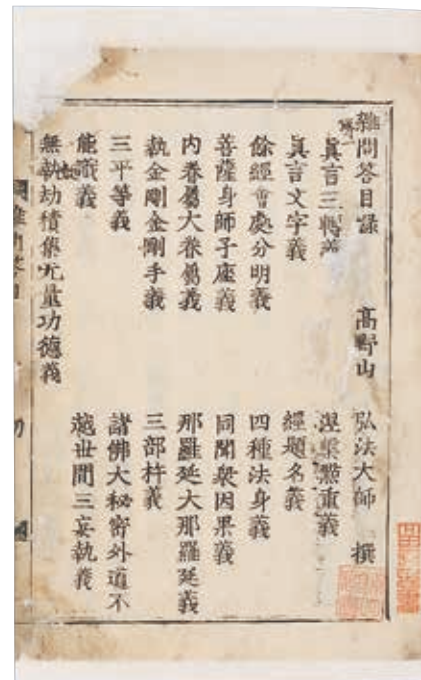 雜問答目録　高野山　弘法大師　撰
眞言三轉義　涅槃㸃重義
眞言文字義　經題名義
餘經會處分明義　四種法身義
菩薩身師子座義　同聞衆因果義
内眷屬大眷屬義　那羅延大那羅延義
執金剛金剛手義　三部杵義
三平等義　諸佛大秘密外道不
能識義　越世間三妄執義
無執劫積集无量功德義